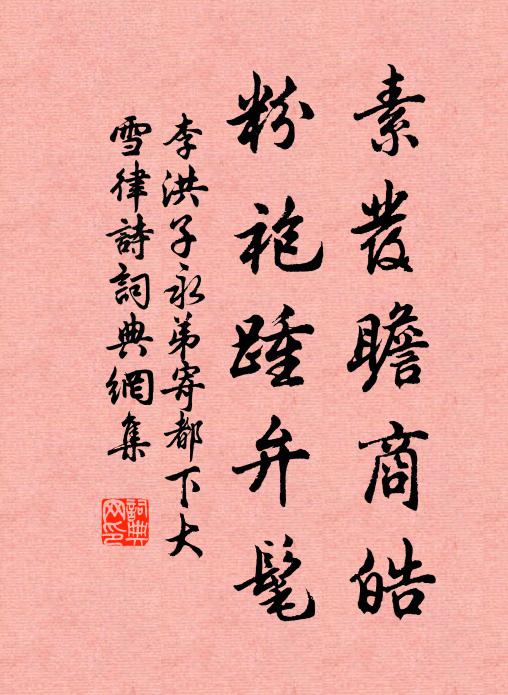 素發瞻商皓
粉袍踵弁髦
李洪子永弟寄都下大
雪律詩詞典網集
詞典网印